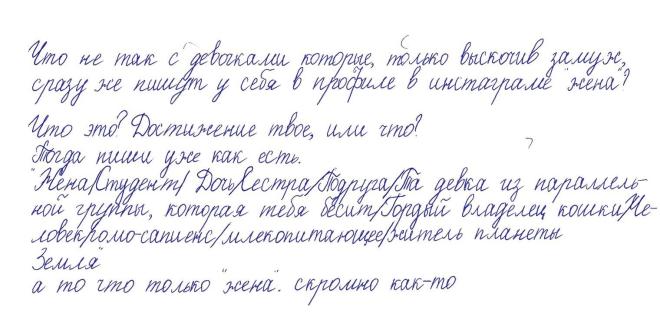 Что не так с девочками которые, только выскочив замуж,
сразу же пишут у себя в профиле в инстаграме "жена"?
Что это? Достижение твое, или что?
Тогда пиши уже как есть.
"Жена/Студент/ Дочь/Сестра/Подруга/Та девка из параллель-
ной группы, которая тебя бесит/Гордый владелец кошки/Че-
ловек/гомо-сапиенс/млекопитающее/житель планеты
Земля"
а то что только "жена". скромно как-то